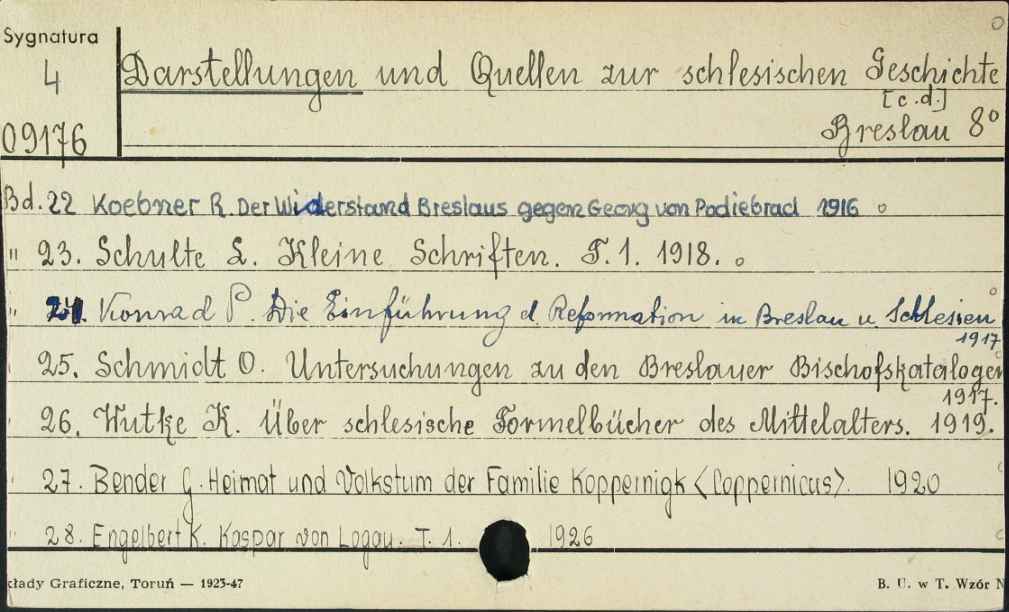 Sygnatura
4
09176
Darstellungen und Quellen zur schlesischen Geschichte
[c.d.]
Breslau 8°
Bd. 22 Koebner R. Der Widerstand Breslaus gegen Georg von Podiebrad 1916
" 23. Schulte L. Kleine Schriften. T. 1. 1918.
" 24. Konrad P. Die Einführung d. Reformation in Breslau u. Schlesien
1917
25. Schmidt O. Untersuchungen zu den Breslauer Bischofskatalogen
1917.
26. Wutke K. Über schlesische Formelbücher des Mittelalters. 1919.
27. Bender G. Heimat und Volkstum der Familie Koppernigk <Coppernicus>. 1920
" 28. Engelbert K. Kaspar von Logau. T. 1. 1926
kłady Graficzne, Toruń — 1923-47
B. U. w T. Wzór N